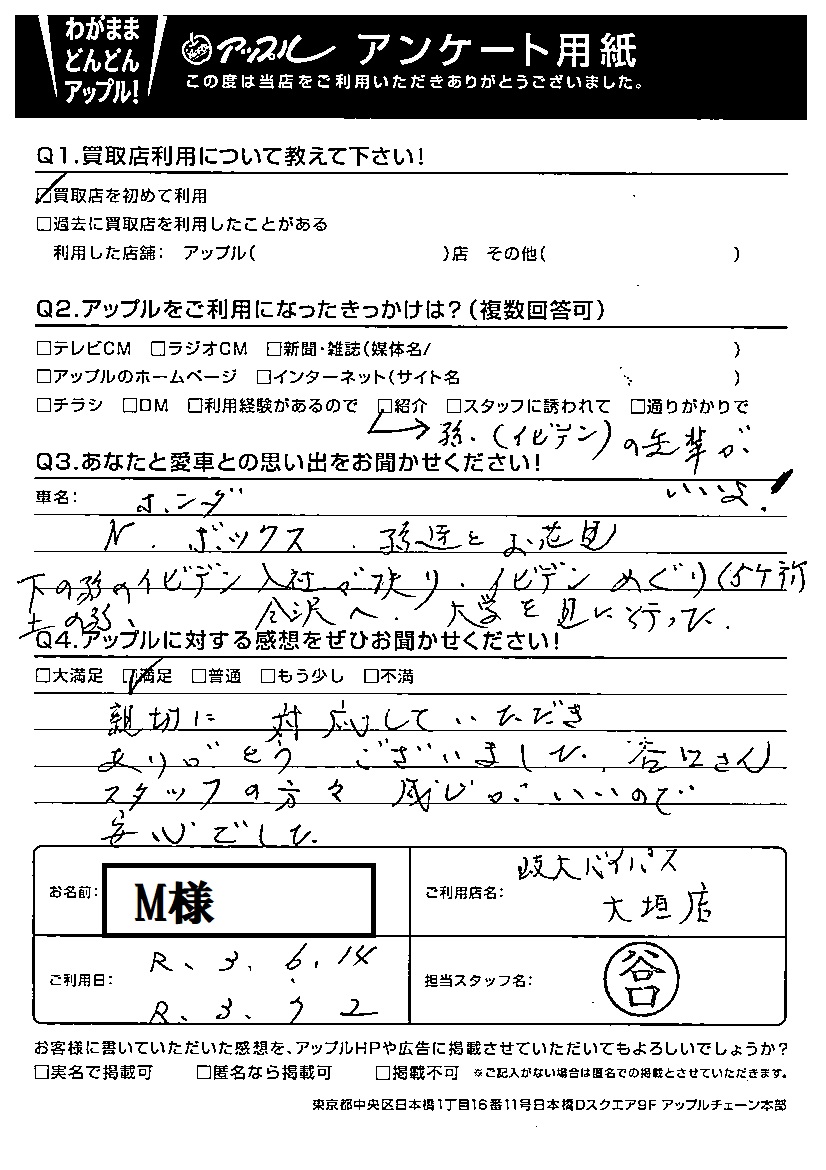 わがまま
どんどん
アップル!
アップル アンケート用紙
この度は当店をご利用いただきありがとうございました。
Q1.買取店利用について教えて下さい!
□買取店を初めて利用
□過去に買取店を利用したことがある
利用した店舗: アップル( )店 その他( )
Q2.アップルをご利用になったきっかけは?(複数回答可)
□テレビCM □ラジオCM □新聞・雑誌(媒体名/ )
□アップルのホームページ □インターネット(サイト名 )
□チラシ □DM □利用経験があるので □紹介 □スタッフに誘われて □通りがかりで
孫.(イビデン)の先輩が
いいよ!
Q3.あなたと愛車との思い出をお聞かせください!
車名: ホンダ
N.ボックス.孫達とお花見
下の孫のイビデン入社が決り.イビデンめぐり(5ケ所
上の孫、金沢へ.大学を見に行った.
Q4.アップルに対する感想をぜひお聞かせください!
□大満足 □満足 □普通 □もう少し □不満
親切に対応していただき
ありがとうございました.谷口さん
スタッフの方々感じがいいので
安心でした.
お名前: M様
ご利用店名: 岐大バイパス
大垣店
ご利用日: R、3.6.14
R、3.7 2
担当スタッフ名: 谷口
お客様に書いていただいた感想を、アップルHPや広告に掲載させていただいてもよろしいでしょうか?
□実名で掲載可 □匿名なら掲載可 □掲載不可 ※ご記入がない場合は匿名での掲載とさせていただきます。
東京都中央区日本橋1丁目16番11号日本橋Dスクエア9F アップルチェーン本部